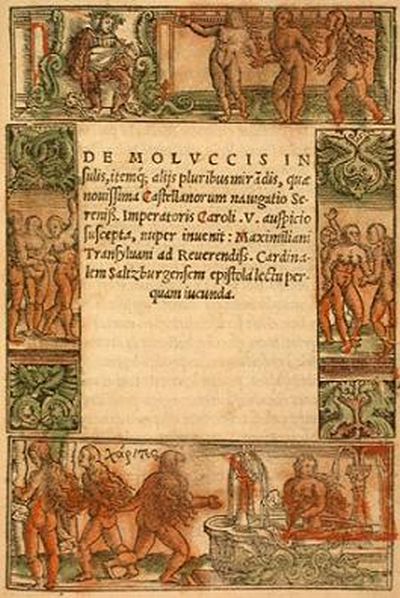 DE MOLVCCIS IN
sulis, itemq; alijs pluribus mirãdis, quæ
nouissima Castellanorum nauigatio Se-
reniss. Imperatoris Caroli .V. auspicio
suscepta, nuper inuenit: Maximiliani
Transyluani ad Reuerendiss. Cardina-
lem Saltzburgensem epistola lectu per-
quam iucunda.
χάριτες